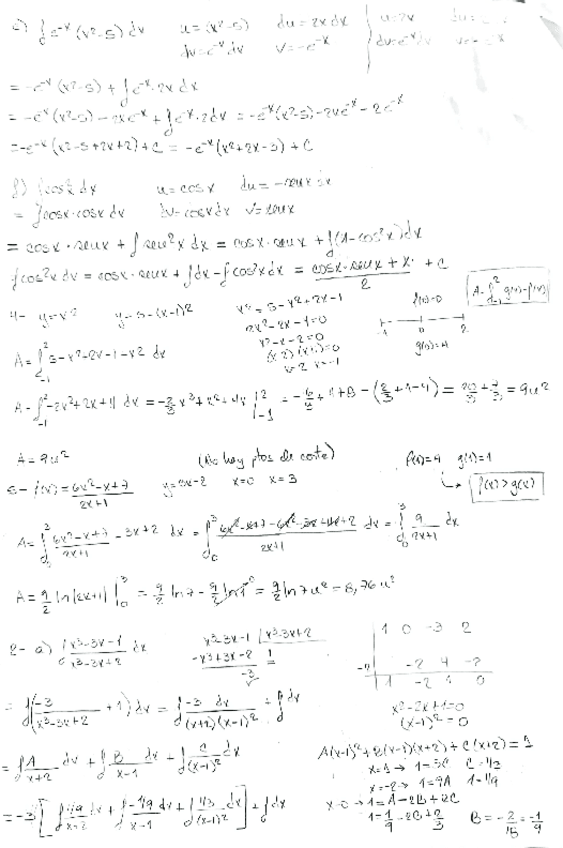 e) ∫e^-x (x²-5) dx   u=(x²-5)   du=2x dx   u=2x
dv=e^-x dx   v=-e^-x
= -e^-x (x²-5) + ∫e^-x · 2x dx
= -e^-x (x²-5) - 2xe^-x + ∫e^-x · 2dx = -e^-x (x²-5) - 2xe^-x - 2e^-x
= -e^-x (x²-5+2x+2) + C = -e^-x (x²+2x-3) + C
f) ∫cos²x dx   u=cosx   du=-senx dx
= ∫cosx·cosx dx   dv=cosx dx   v=senx
= cosx·senx + ∫sen²x dx = cosx·senx + ∫(1-cos²x)dx
∫cos²x dx = cosx·senx + ∫dx - ∫cos²x dx = (cosx·senx + x)/2 + C
4- y=x²   y=5-(x-1)²   x²=5-x²+2x-1   f(0)=0   A=∫_-1^2 g(x)-f(x)
2x²-2x-4=0   -1   0   2
x²-x-2=0   g(0)=4
A=∫_-1^2 5-x²-2x-1-x² dx   (x-2)(x+1)=0
x=2   x=-1
A=∫_-1^2 -2x²+2x+4 dx = -2/3 x³+x²+4x |_-1^2 = + 4+8 - (2/3+1-4) = 20/3 + 7/3 = 9u²
A=9u²   (No hay ptos de corte)   f(1)=4   g(1)=1
5- f(x)=(6x²-x+7)/(2x+1)   y=3x-2   x=0   x=3   f(x)>g(x)
A=∫ (6x²-x+7)/(2x+1) - 3x+2 dx = ∫_0^3 dx = ∫_0^3 9/(2x+1) dx
A=9/2 ln|2x+1| |_0^3 = 9/2 ln7 - 9/2 ln1 = 9/2 ln7 u² = 8,76u²
2- a) ∫(x³-3x-1)/(x³-3x+2) dx   x³-3x-1 | x³-3x+2   1   0   -3   2
-x³+3x-2   1   -2   -2   4   -2
-3   1   -2   1   0
= ∫(-3/(x³-3x+2) + 1) dx = ∫-3 dx/((x+2)(x-1)²) + ∫dx   x²-2x+1=0
(x-1)²=0
= ∫A/(x+2) dx + ∫B/(x-1) dx + ∫C/(x-1)² dx   A(x-1)²+B(x-1)(x+2)+C(x+2)=1
x=1 → 1=3C   C=1/3
x=-2 → 1=9A   A=1/9
= -3[∫(1/9)/(x+2) dx + ∫(-1/9)/(x-1) dx + ∫(1/3)/(x-1)² dx] + ∫dx   x=0 → 1=A-2B+2C
1=1/9-2B+2/3   -1/9